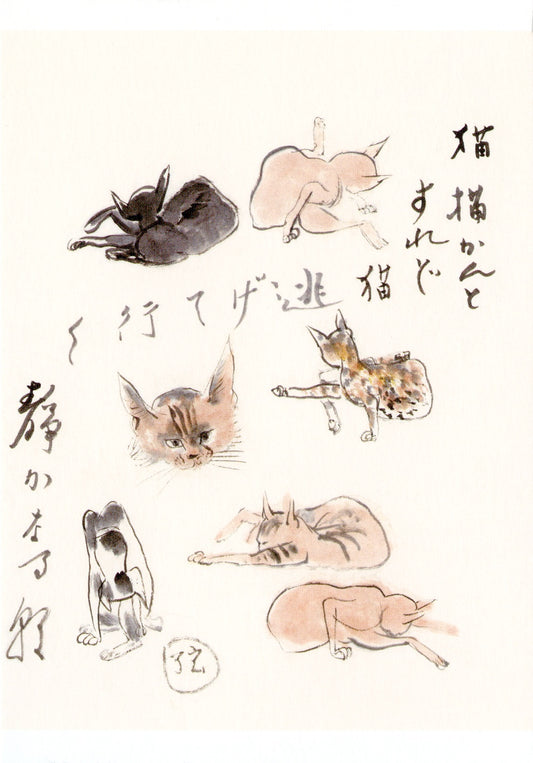 猫描かんと
すれど
猫
逃げて行く
静かなる
弦